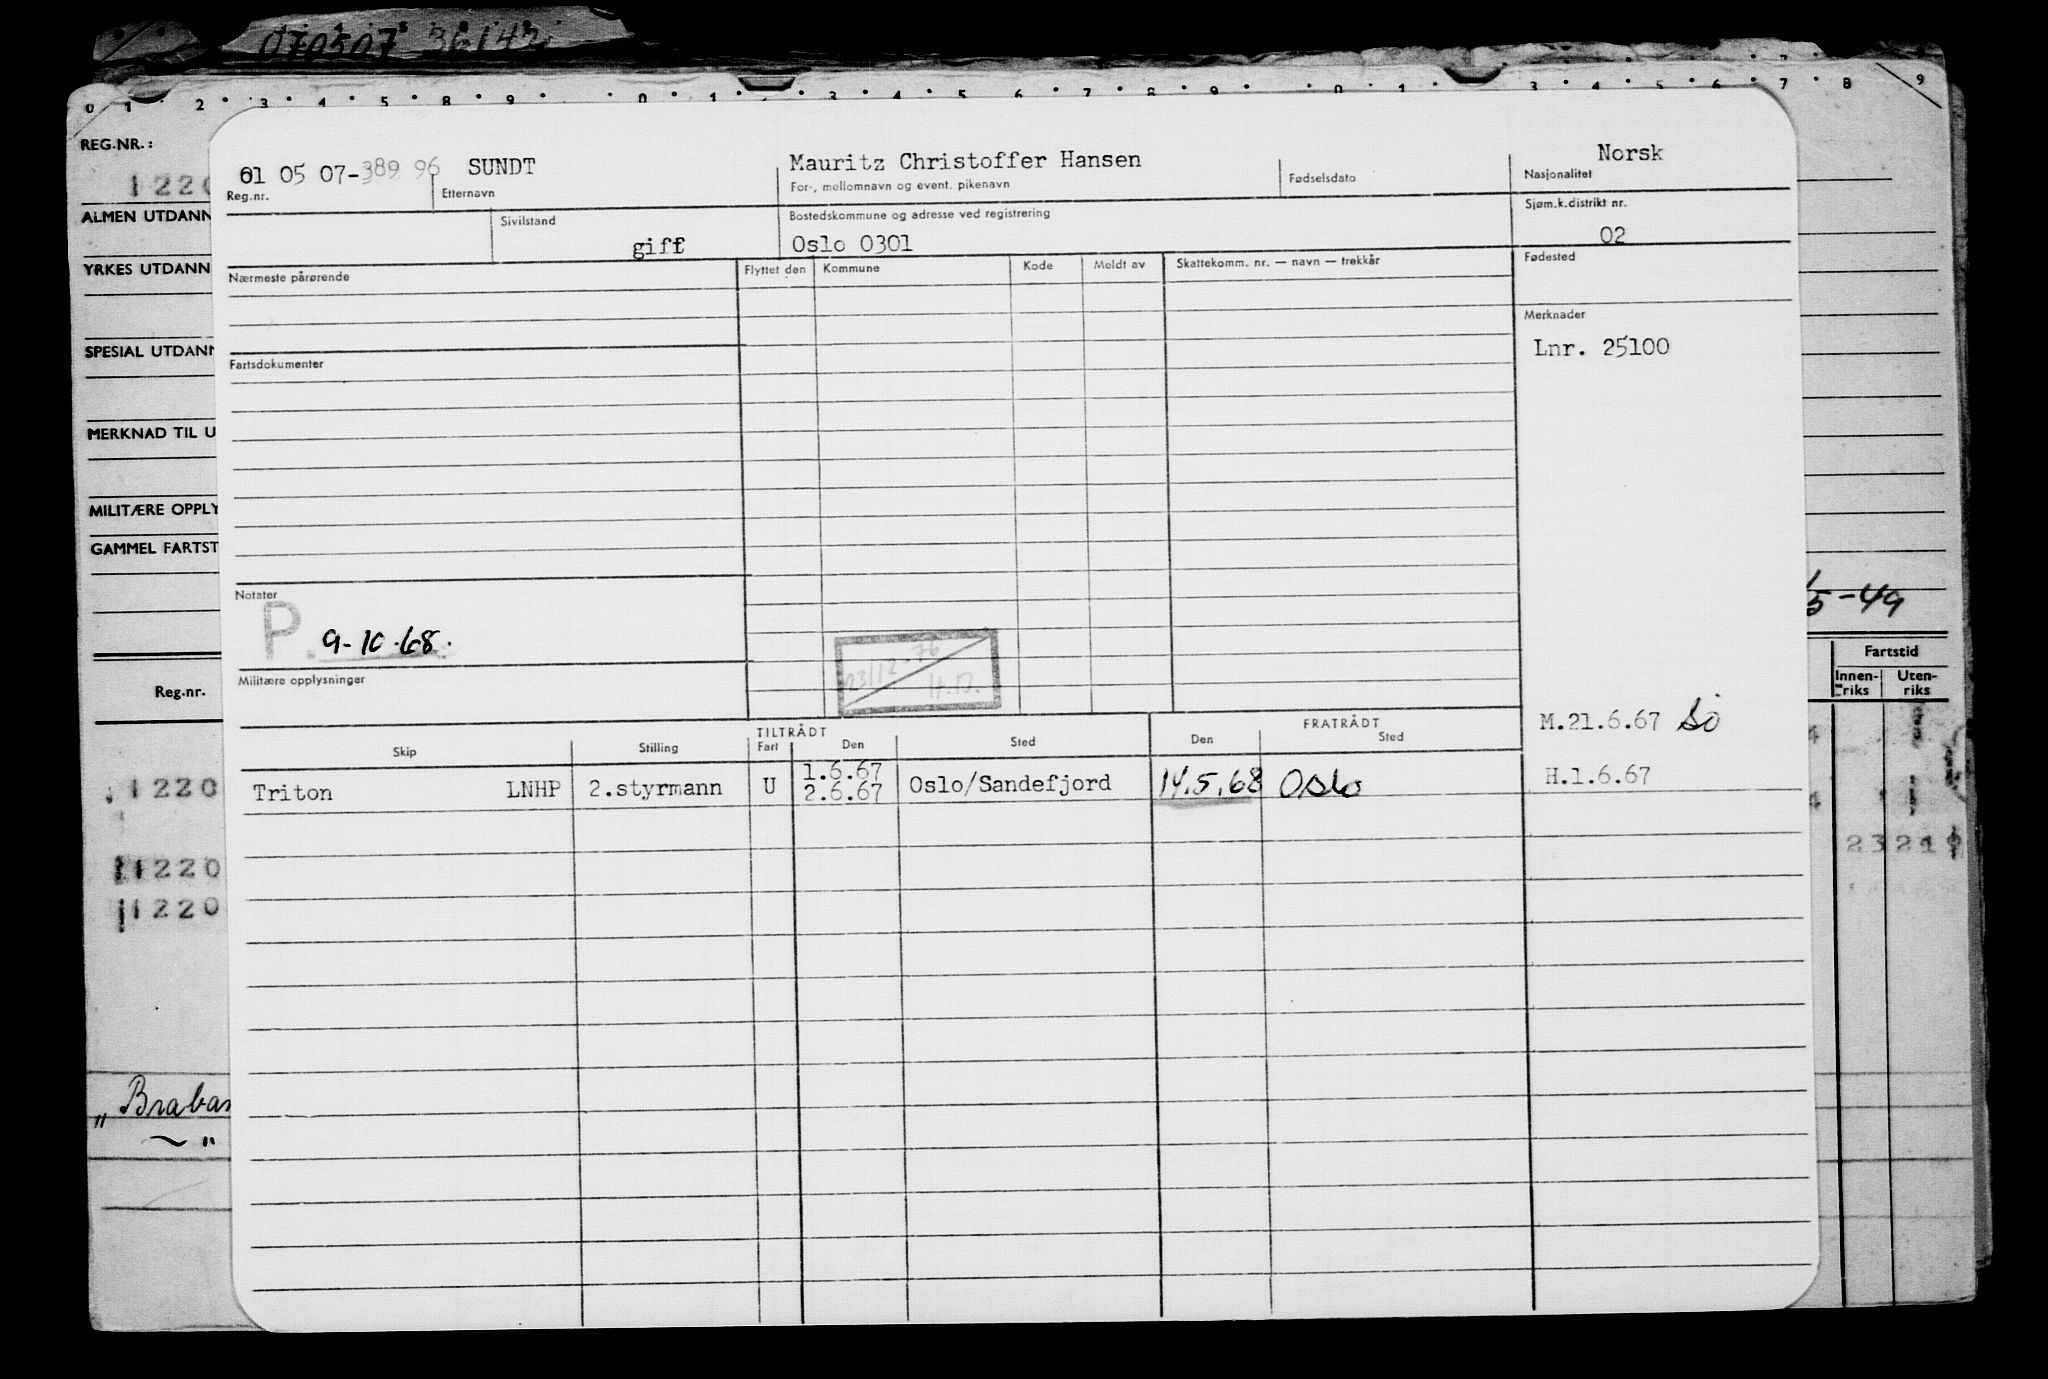 070507 36142
0 1 2 3 4 5 8 9 0 1 2 3 4 5 6 7 8 9 0 1 3 4 5 6 7 8 9
REG.NR.:
1220
ALMEN UTDANN
YRKES UTDANN
SPESIAL UTDANN
MERKNAD TIL U
MILITÆRE OPPLY
GAMMEL FARTST
Reg.nr.
1220
1220
1220
„ Braban
~ "
01 05 07-389 96 SUNDT Mauritz Christoffer Hansen Norsk
Reg.nr. Etternavn For-, mellomnavn og event. pikenavn Fødselsdato Nasjonalitet
Sivilstand Bostedskommune og adresse ved registrering Sjøm.k.distrikt nr.
gift Oslo 0301 02
Nærmeste pårørende Flyttet den Kommune Kode Meldt av Skattekomm. nr. — navn — trekkår Fødested
Merknader
Lnr. 25100
Fartsdokumenter
Notater
P. 9-10-68.
23/12-76
H.D.
Militære opplysninger
M.21.6.67 Sö
TILTRÅDT FRATRÅDT
Skip Stilling Fart Den Sted Den Sted
Triton LNHP 2.styrmann U 1.6.67 2.6.67 Oslo/Sandefjord 14.5.68 Oslo H.1.6.67
5-49
Fartstid
Innen-riks Uten-riks
23 21